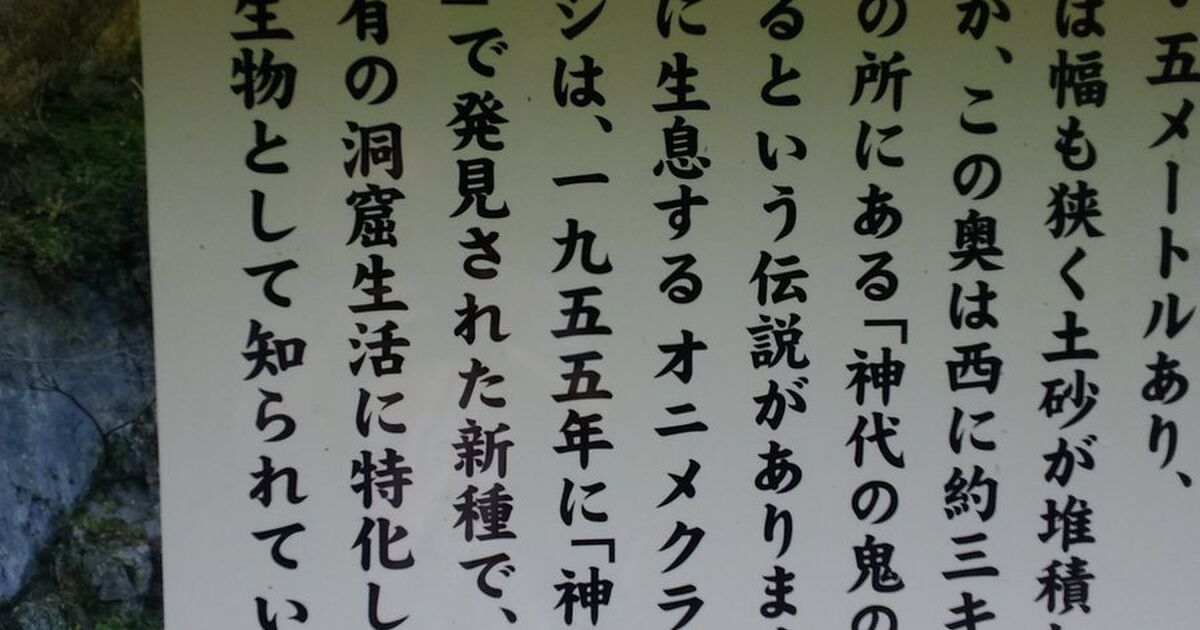 五メートルあり、
は幅も狭く土砂が堆積
か、この奥は西に約三キ
の所にある「神代の鬼の
るという伝説がありま
に生息するオニメクラ
シは、一九五五年に「神
」で発見された新種で、
有の洞窟生活に特化し
生物として知られてい